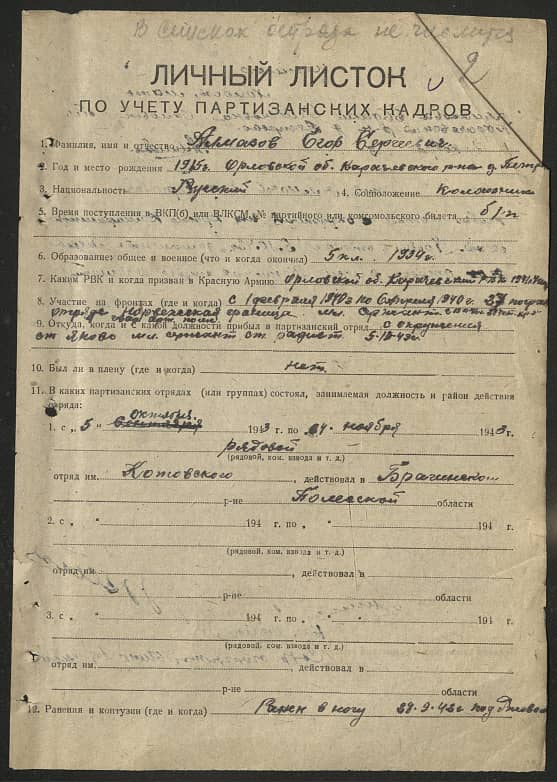 В списках отряда не числится
2
ЛИЧНЫЙ ЛИСТОК
ПО УЧЕТУ ПАРТИЗАНСКИХ КАДРОВ
1. Фамилия, имя и отчество Алмазов Егор Сергеевич
2. Год и место рождения 1915г. Орловской об. Карачевского р-на д.
3. Национальность Русский 4. Соцположение Колхозник
5. Время поступления в ВКП(б) или ВЛКСМ, № партийного или комсомольского билета б/п
6. Образование общее и военное (что и когда окончил) 5 кл. 1934г.
7. Каким РВК и когда призван в Красную Армию Орловской об. Карачевский РВК
8. Участие на фронтах (где и когда) с 1 февраля 1940г по апреля 1940г.
отряд граница мл. сержант
9. Откуда, когда и с какой должности прибыл в партизанский отряд с окружения
мл. сержант ст. радист 5-10-43г
10. Был ли в плену (где и когда) нет
11. В каких партизанских отрядах (или группах) состоял, занимаемая должность и район действия
отряда:
октября
1. с „5" сентября 1943 г. по „24" ноября 1943г.
рядовой
(рядовой, ком. взвода и т. д.)
отряд им. Котовского, действовал в Брагинском
р-не Полесской области
2. с „ " 194 г. по „ " 194 г.
(рядовой, ком. взвода и т. д.)
отряд им. , действовал в
р-не области
3. с „ " 194 г. по „ " 194 г.
(рядовой, ком. взвода и т. д.)
отряд им. , действовал в
р-не области
12. Ранения и контузии (где и когда) Ранен в ногу 28.9.42г под Ржевом